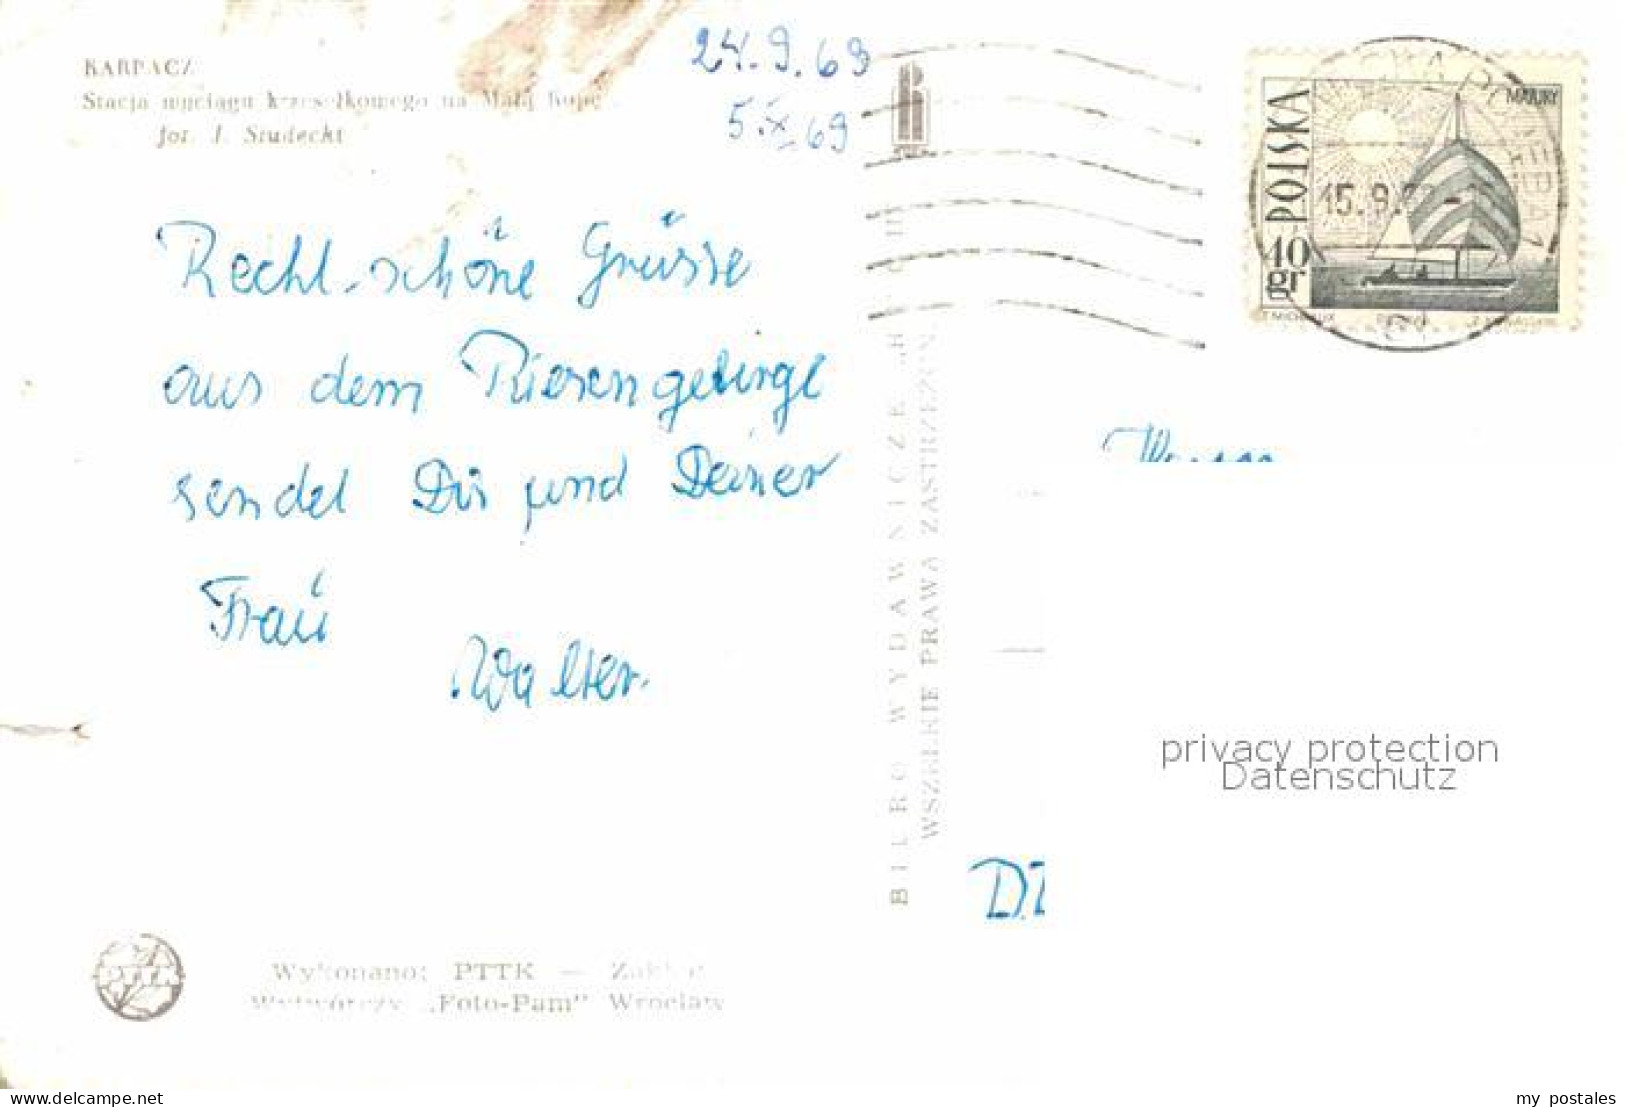 KARPACZ
Stacja wyciągu krzesełkowego na Małą Kopę
fot. J. Siudecki
24.9.69
5.IX.69
Rechl. schöne Grüsse
aus dem Riesengebirge
sendet Dir und Deiner
Frau
Walter.
BIURO WYDAWNICZE „RUCH”
WSZELKIE PRAWA ZASTRZEŻONE
Wykonano: PTTK — Zakład
Wytwórczy „Foto-Pam” Wrocław
PTTK
MAZURY
POLSKA
40
gr
15.9.
privacy protection
Datenschutz
www.delcampe.net
my_postales